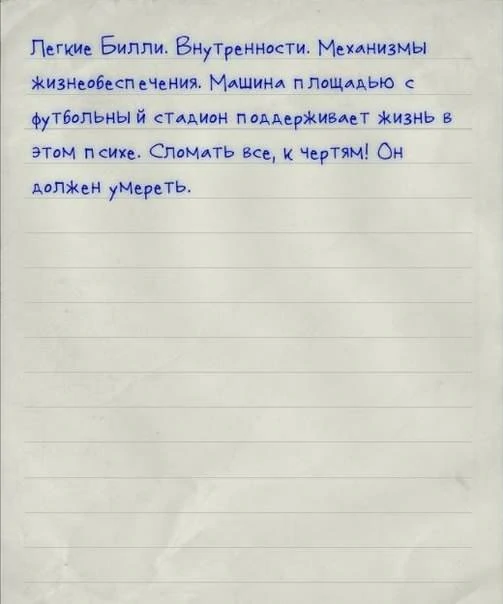 Легкие Билли. Внутренности. Механизмы
жизнеобеспечения. Машина площадью с
футбольный стадион поддерживает жизнь в
этом психе. Сломать все, к чертям! Он
должен умереть.